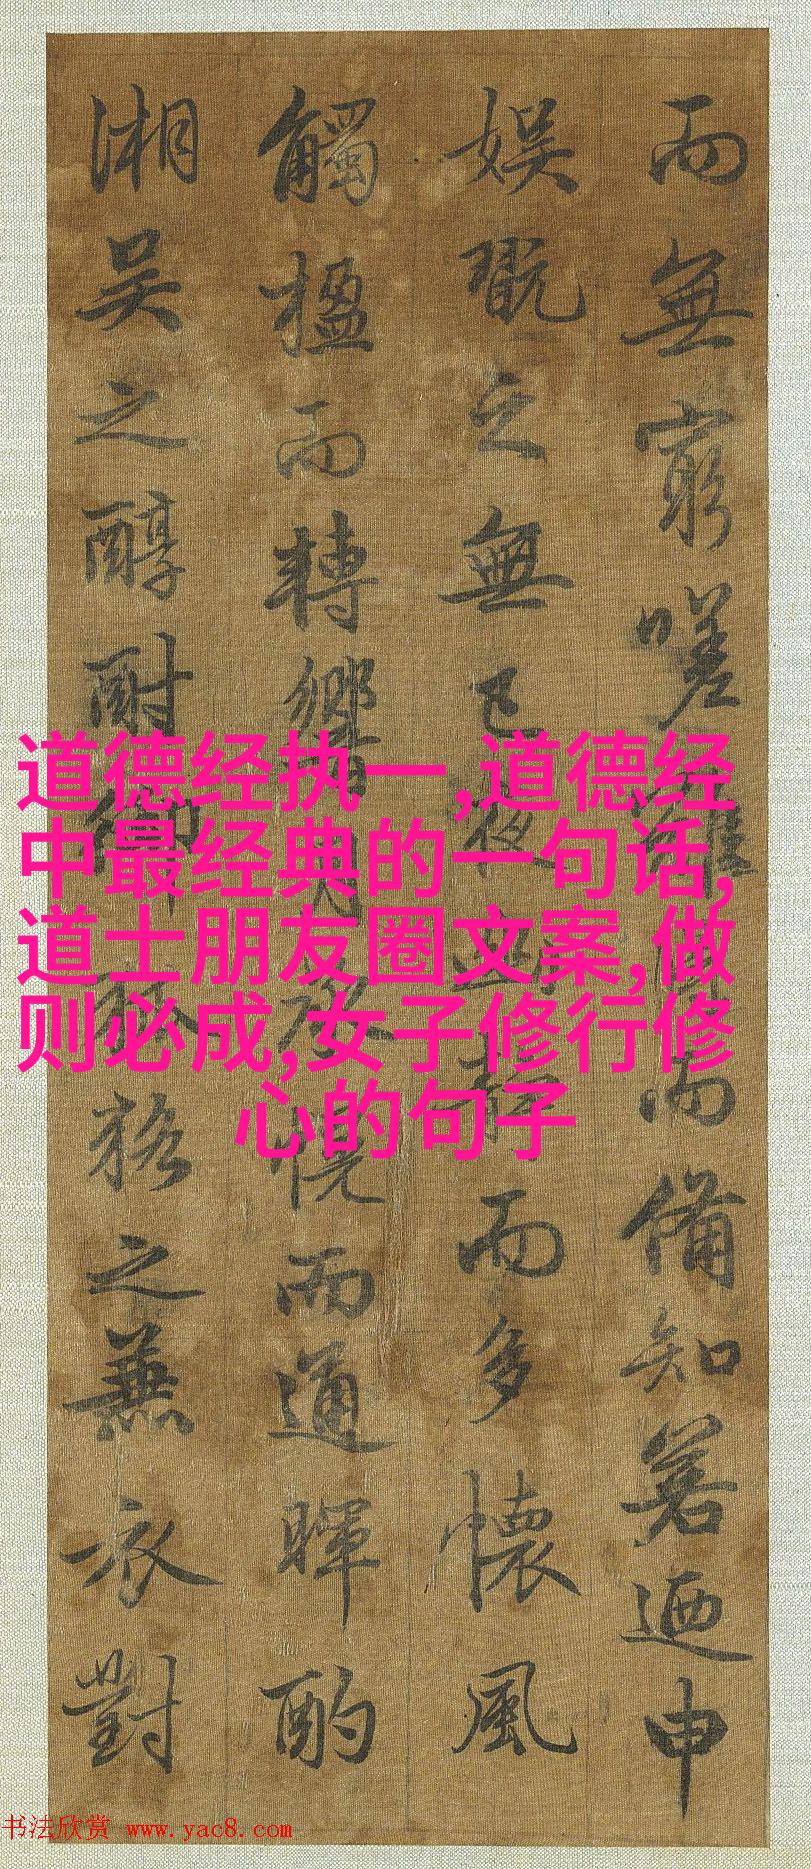 而無窮嗟
而備知若迺申
娛翫之無已夜
靜而多懷風
觸楹而轉響月
承幌而通暉酌
湘吴之醇酎
之無衣對
道德经执一,道德经
中最经典的一句话,
道士朋友圈文案,做
则必成,女子修行修
心的句子
书法欣赏 www.yac8.com